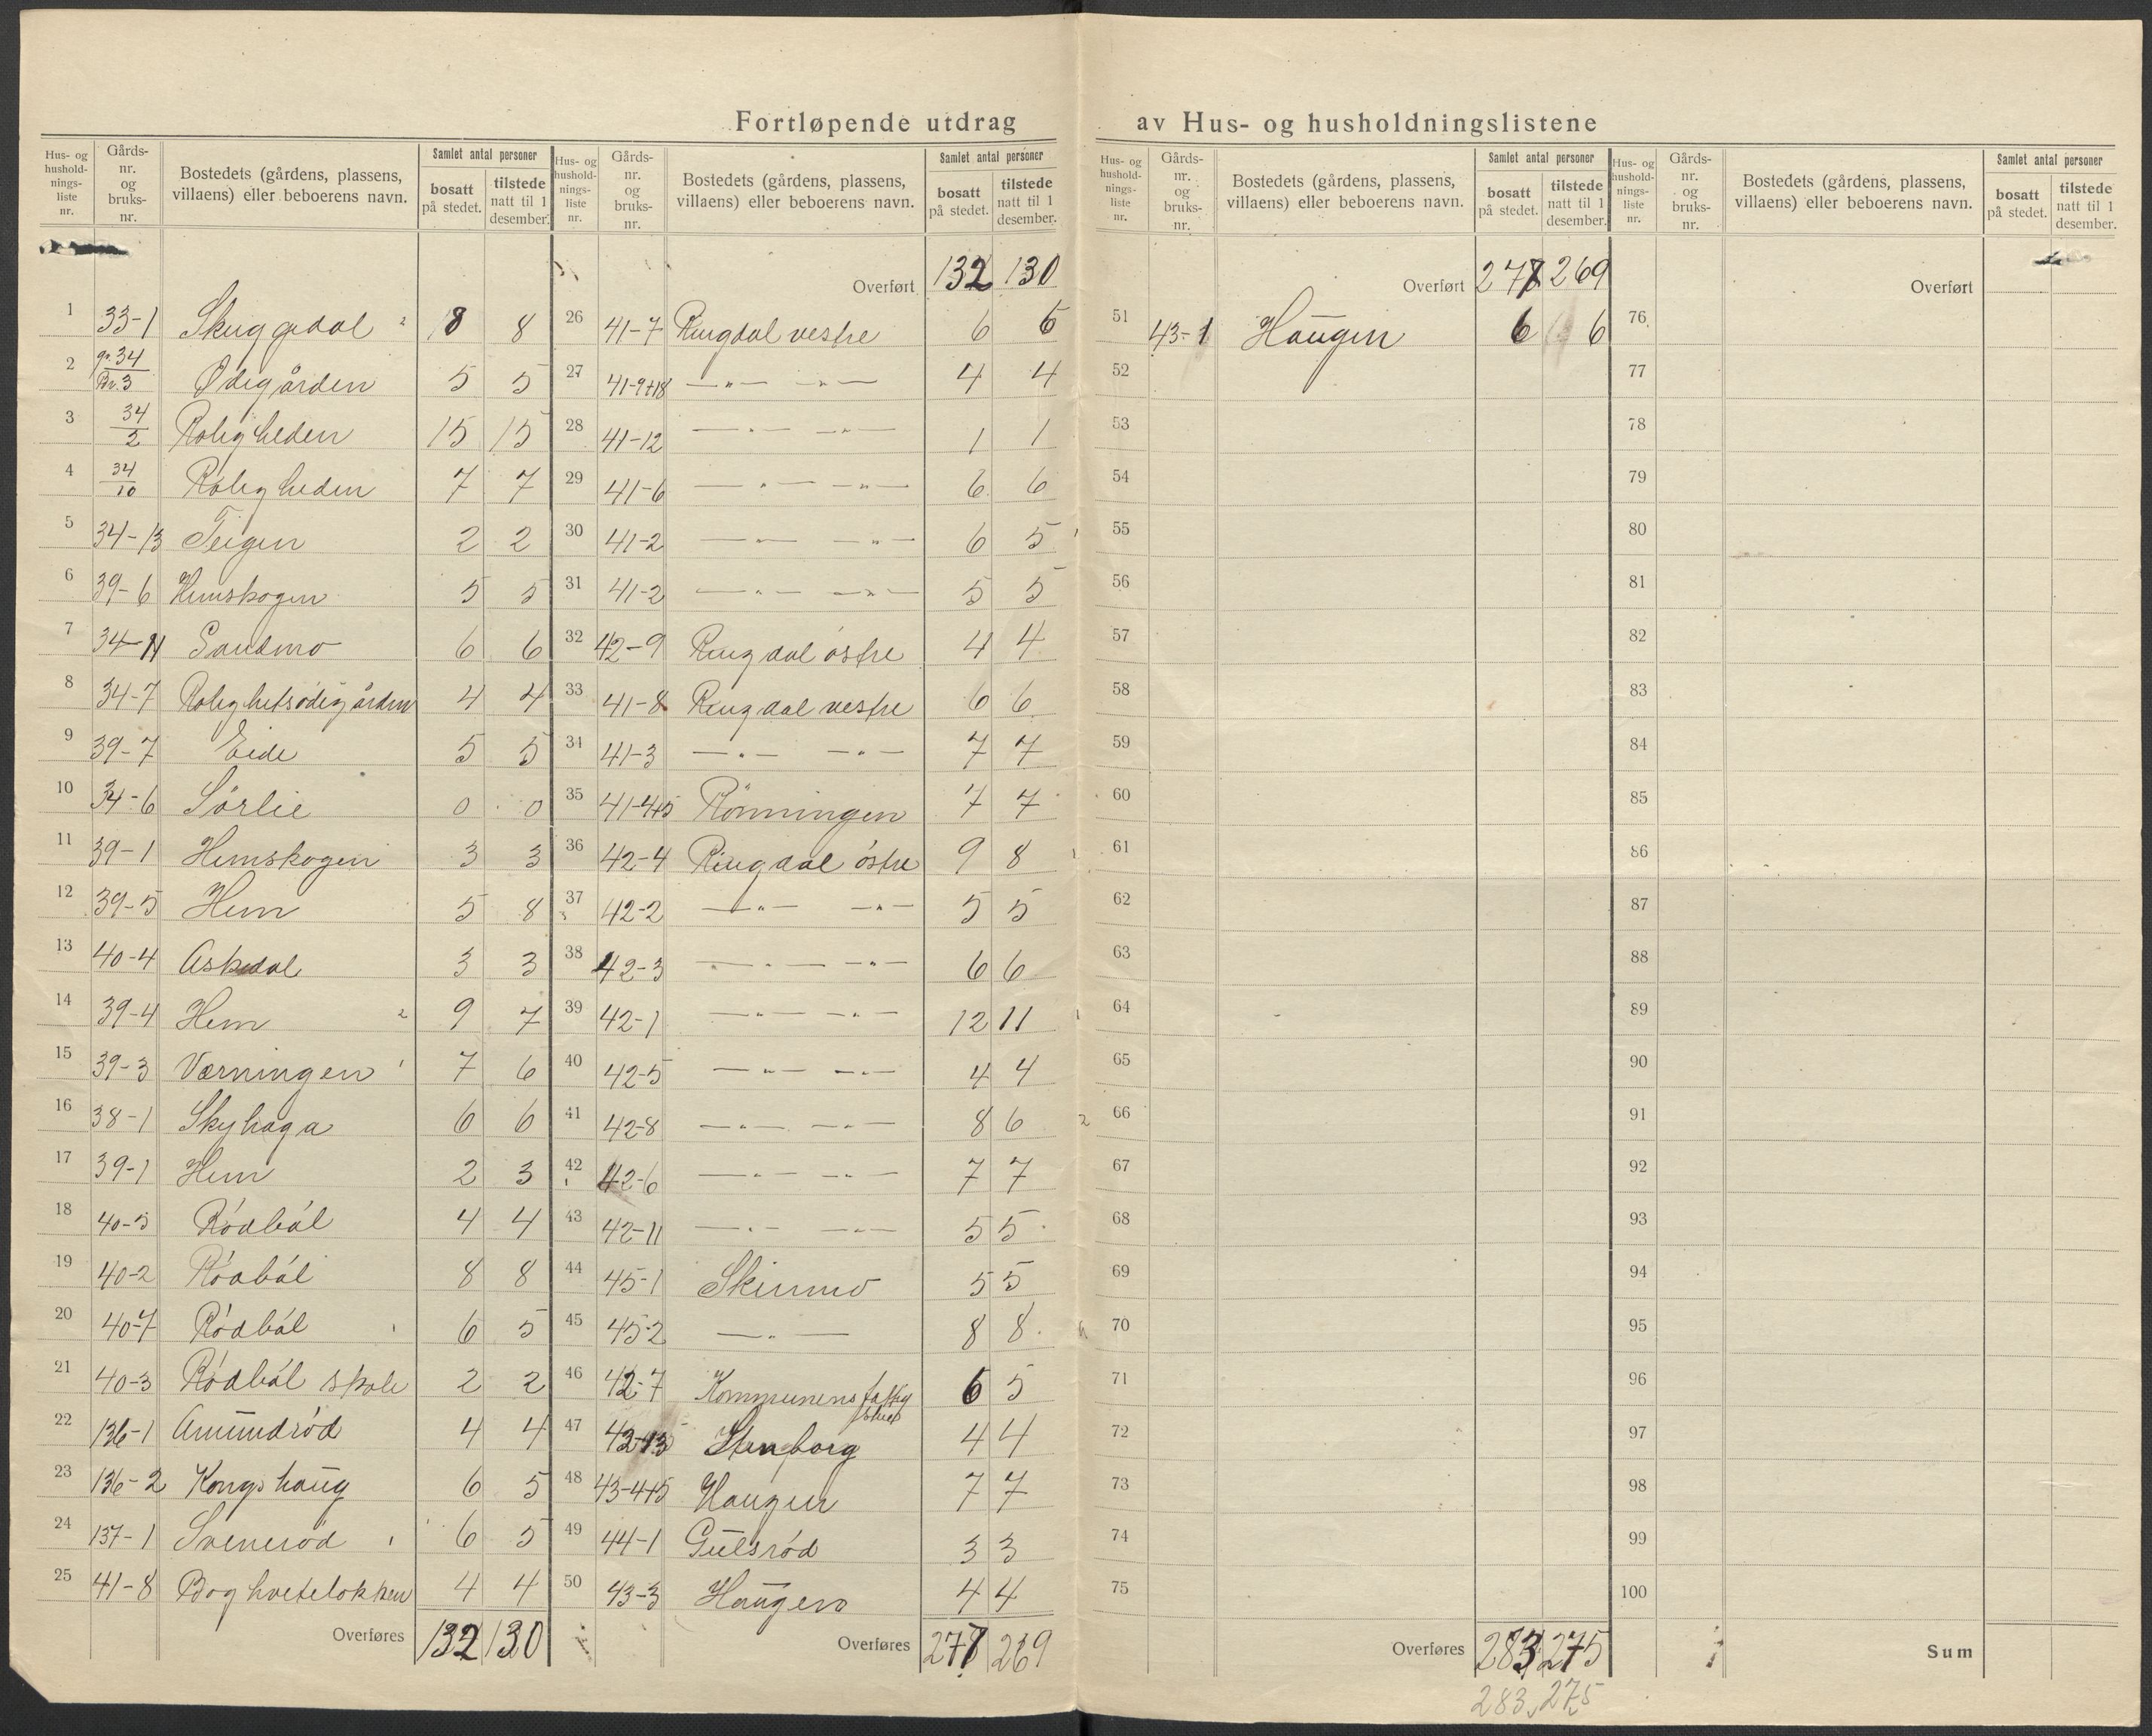 Fortløpende utdrag av Hus- og husholdningslistene
Hus- og hushold-nings-liste nr. | Gårds-nr. og bruks-nr. | Bostedets (gårdens, plassens, villaens) eller beboerens navn. | Samlet antal personer | bosatt på stedet. | tilstede natt til 1 desember.
1 33-1 Skuggedal 2 8 8
2 gr. 34 Br. 3 Ødegården 5 5
3 34/2 Roligheden 15 15
4 34/10 Roligheden 7 7
5 34-13 Teigen 2 2
6 39-6 Hemskogen 5 5
7 34-11 Sandmo 6 6
8 34-7 Rolighetsødegården 4 4
9 39-7 Eide 5 5
10 34-6 Sörlie 0 0
11 39-1 Hemskogen 3 3
12 39-5 Hem 5 8
13 40-4 Askedal 3 3
14 39-4 Hem 2 9 7
15 39-3 Værningen 1 7 6
16 38-1 Skyhaga 6 6
17 39-1 Hem 2 3
18 40-5 Rödbøl 4 4
19 40-2 Rödbøl 8 8
20 40-7 Rödbøl 1 6 5
21 40-3 Rödbøl skole 2 2
22 136-1 Amundröd 4 4
23 136-2 Kongshaug 6 5
24 137-1 Sveneröd 1 6 5
25 41-8 Boghvetelökken 4 4
Overføres 132 130
Hus- og hushold-nings-liste nr. | Gårds-nr. og bruks-nr. | Bostedets (gårdens, plassens, villaens) eller beboerens navn. | Samlet antal personer | bosatt på stedet. | tilstede natt til 1 desember.
Overført 132 130
26 41-7 Ringdal vestre 6 6
27 41-9+18 —"— —"— 4 4
28 41-12 —"— —"— 1 1
29 41-6 —"— —"— 6 6
30 41-2 —"— —"— 6 5 1
31 41-2 —"— —"— 5 5
32 42-9 Ringdal östre 4 4
33 41-8 Ringdal vestre 6 6
34 41-3 —"— —"— 7 7
35 41-4+5 Rönningen 7 7
36 42-4 Ringdal östre 9 8 1
37 42-2 —"— —"— 5 5
38 42-3 —"— —"— 6 6
39 42-1 —"— —"— 12 11 1
40 42-5 —"— —"— 4 4
41 42-8 —"— —"— 8 6 2
42 42-6 —"— —"— 7 7
43 42-11 —"— —"— 5 5
44 45-1 Skinmo 5 5
45 45-2 —"— 8 8
46 42-7 Kommunens fattigstue 6 5
47 42-13 Stenborg 4 4
48 43-4+5 Haugen 7 7
49 44-1 Gulsröd 3 3
50 43-3 Haugen 4 4
Overføres 277 269
Hus- og hushold-nings-liste nr. | Gårds-nr. og bruks-nr. | Bostedets (gårdens, plassens, villaens) eller beboerens navn. | Samlet antal personer | bosatt på stedet. | tilstede natt til 1 desember.
Overført 277 269
51 43-1 Haugen 6 6
52
53
54
55
56
57
58
59
60
61
62
63
64
65
66
67
68
69
70
71
72
73
74
75
Overføres 283 275
283 275
Hus- og hushold-nings-liste nr. | Gårds-nr. og bruks-nr. | Bostedets (gårdens, plassens, villaens) eller beboerens navn. | Samlet antal personer | bosatt på stedet. | tilstede natt til 1 desember.
Overført
76
77
78
79
80
81
82
83
84
85
86
87
88
89
90
91
92
93
94
95
96
97
98
99
100
Sum